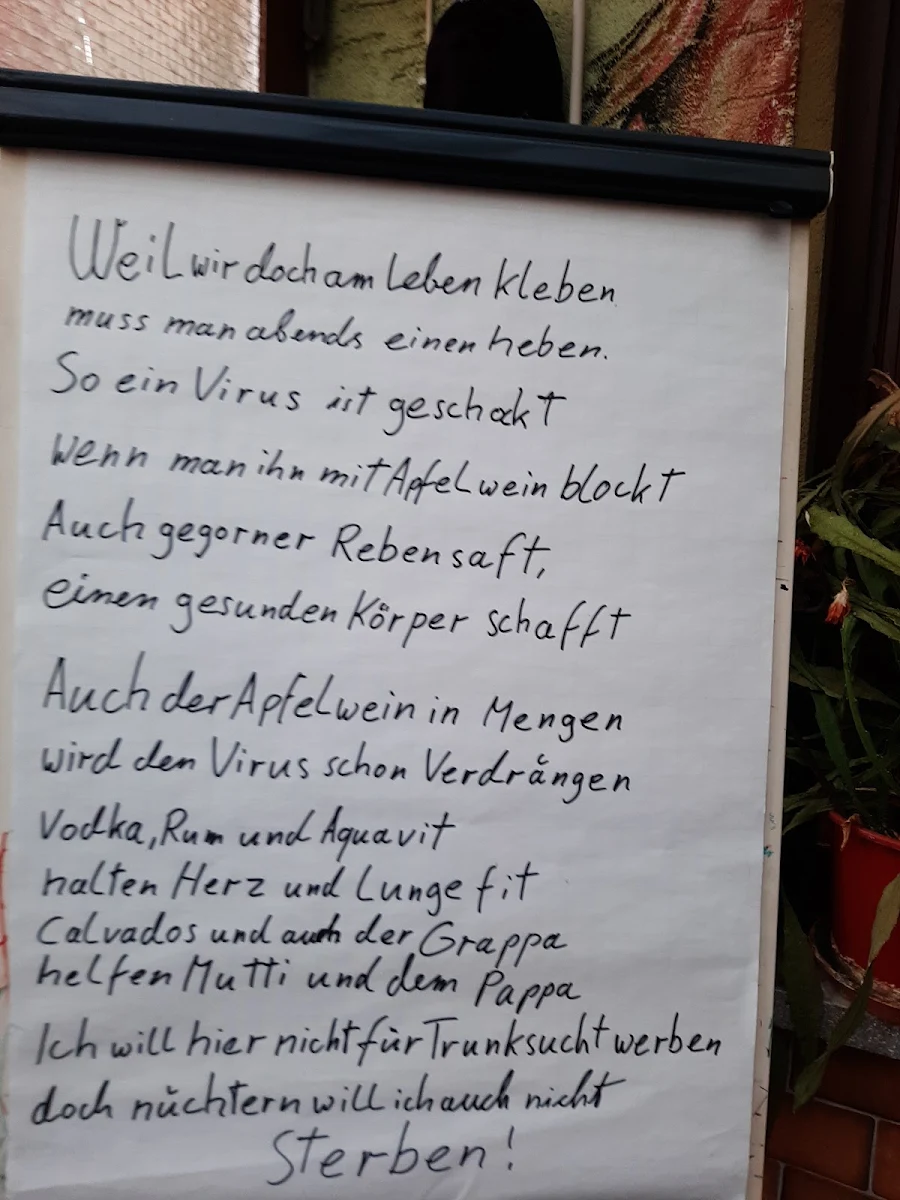 Weil wir doch am Leben kleben
muss man abends einen heben.
So ein Virus ist geschokt
wenn man ihn mit Apfelwein blockt
Auch gegorner Rebensaft,
einen gesunden Körper schafft
Auch der Apfelwein in Mengen
wird den Virus schon Verdrängen
Vodka, Rum und Aquavit
halten Herz und Lunge fit
Calvados und auch der Grappa
helfen Mutti und dem Pappa
Ich will hier nicht für Trunksucht werben
doch nüchtern will ich auch nicht
Sterben!